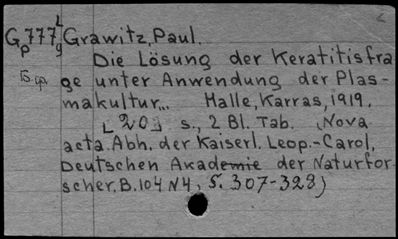 Gp777 L/g Grawitz, Paul.
Die Lösung der Keratitisfra
ge unter Anwendung der Plas-
makultur... Halle, Karras, 1919.
[20] s., 2 Bl. Tab. (Nova
acta. Abh. der Kaiserl. Leop.-Carol.
Deutschen Akademie der Naturfor-
scher, B.104 N4, S. 307-328)